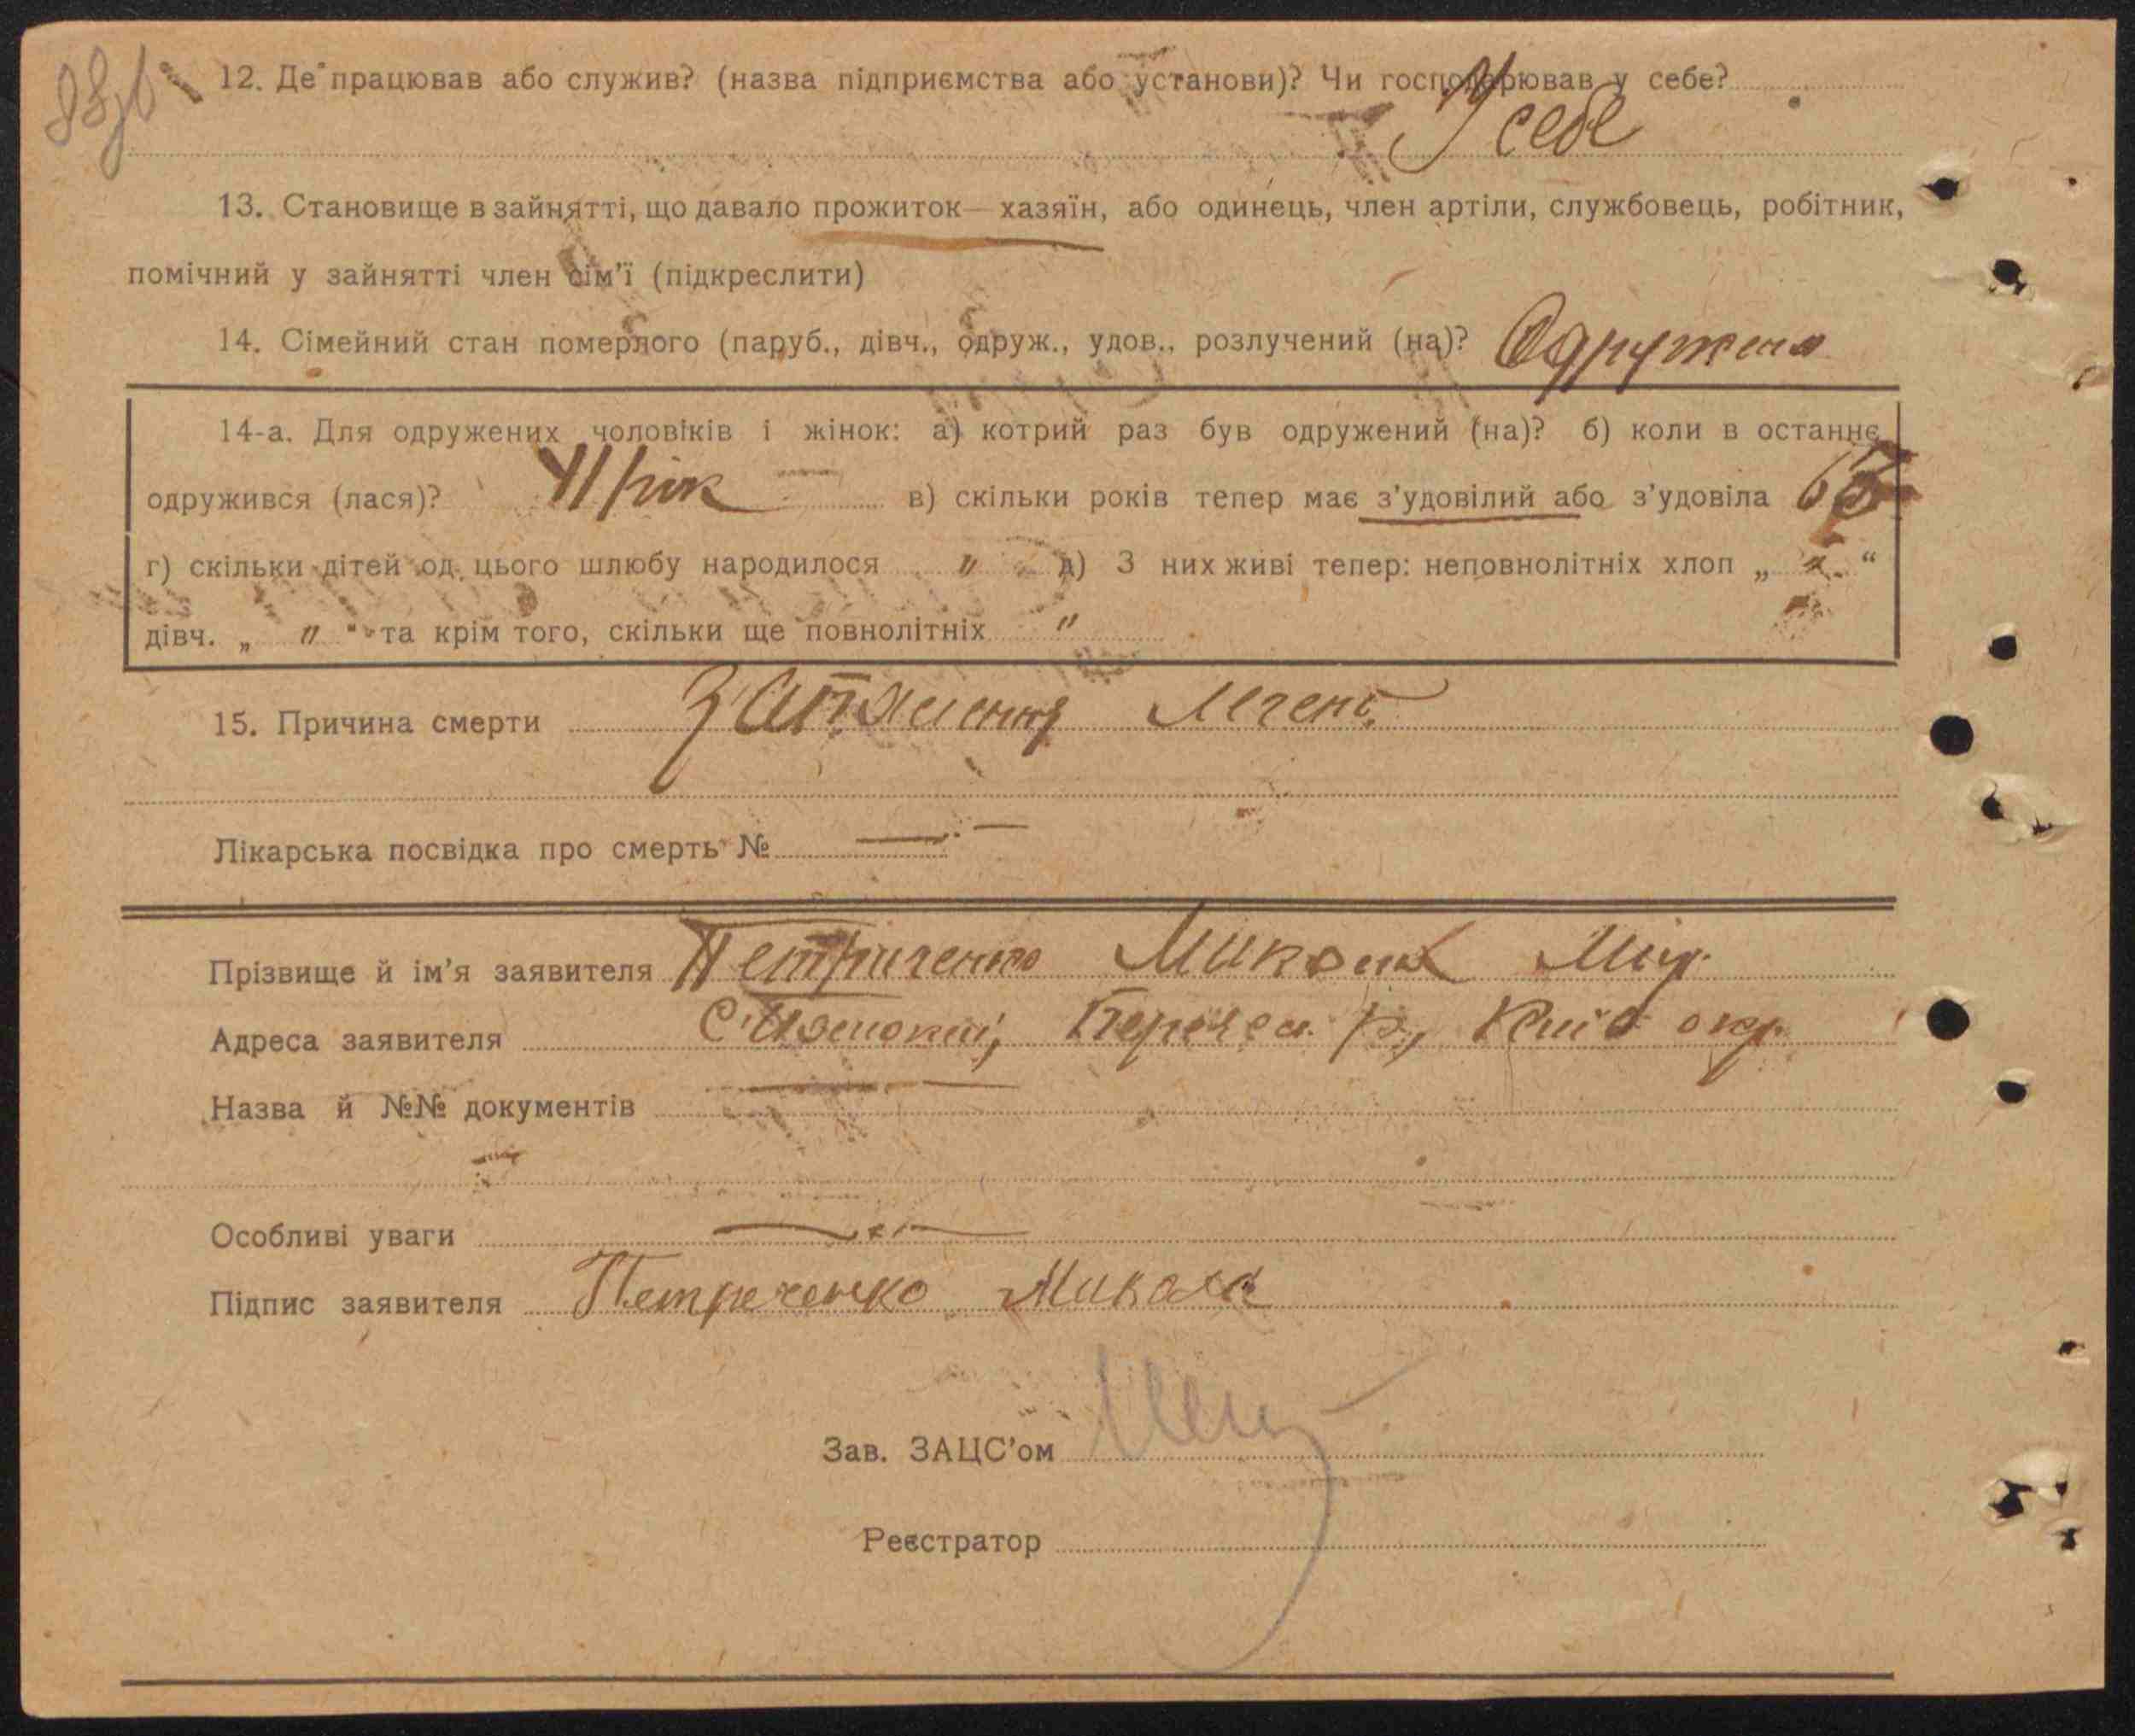 12. Де працював або служив? (назва підприємства або установи)? Чи господарював у себе?
У себе
13. Становище в зайнятті, що давало прожиток—хазяїн, або одинець, член артіли, службовець, робітник,
помічний у зайнятті член сім'ї (підкреслити)
14. Сімейний стан померлого (паруб., дівч., одруж., удов., розлучений (на)? Одружена
14-а. Для одружених чоловіків і жінок: а) котрий раз був одружений (на)? б) коли в останнє
одружився (лася)? рік в) скільки років тепер має з'удовілий або з'удовіла
г) скільки дітей од цього шлюбу народилося " д) З них живі тепер: неповнолітніх хлоп „ "
дівч. „ " " та крім того, скільки ще повнолітніх "
15. Причина смерти Запалення легень
Лікарська посвідка про смерть № —
Прізвище й ім'я заявителя Петриченко Микола
Адреса заявителя Київ окр.
Назва й №№ документів —
Особливі уваги —
Підпис заявителя Петреченко Микола
Зав. ЗАЦС'ом
Реєстратор